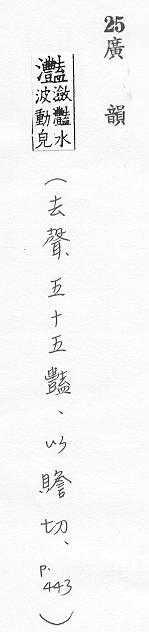 25 廣韻
灩 瀲灩水
波動皃
(去聲、五十五豔、以贍切、p.443)